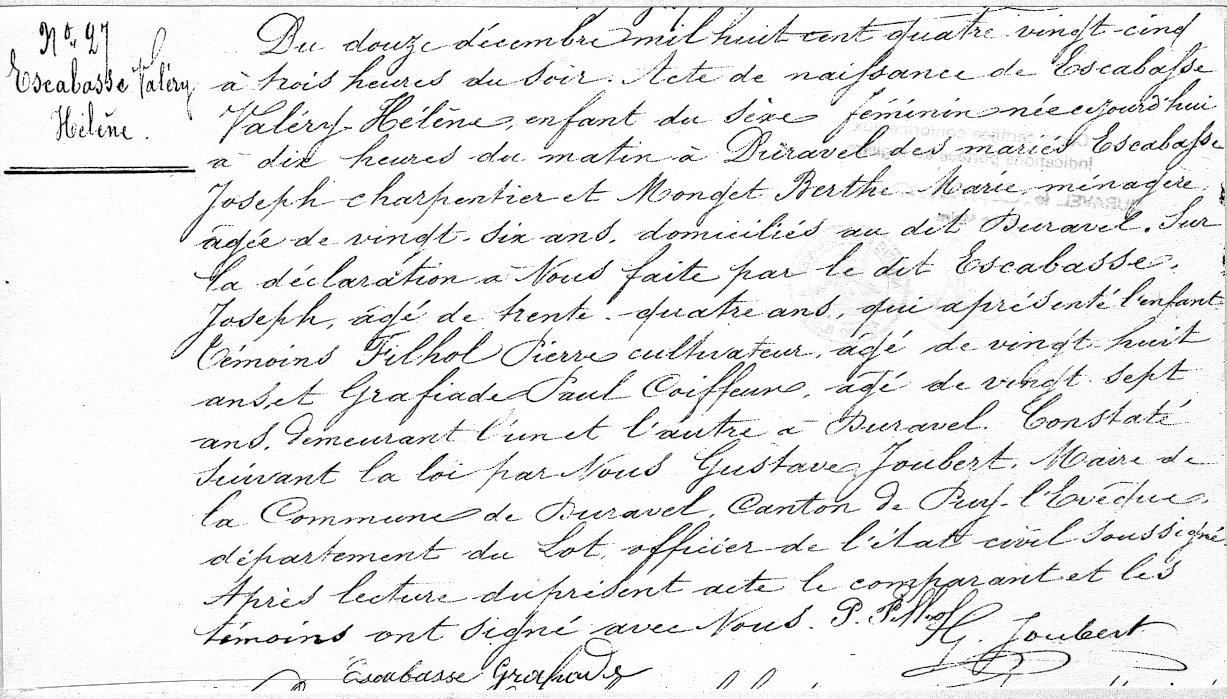 No. 27
Escabasse Valéry
Hélène.
Du douze décembre mil huit cent quatre vingt-cinq
à trois heures du soir. Acte de naissance de Escabasse
Valéry Hélène, enfant du sèxe féminin née cejourd'hui
à dix heures du matin à Duravel des mariés Escabasse
Joseph charpentier et Monget Berthe Marie, ménagère,
âgée de vingt-six ans, domiciliés au dit Duravel. Sur
la déclaration à Nous faite par le dit Escabasse,
Joseph, âgé de trente-quatre ans, qui a présenté l'enfant
Témoins Filhol Pierre cultivateur, âgé de vingt huit
ans, et Grafiade Paul Coiffeur, âgé de vingt sept
ans, demeurant l'un et l'autre à Duravel. Constaté
suivant la loi par Nous Gustave Joubert, Maire de
la Commune de Duravel, Canton de Puy-l'Evêque,
département du Lot, officier de l'état civil soussigné
Après lecture du présent acte le comparant et les
témoins ont signé avec Nous. P. Filhol
G. Joubert
Escabasse